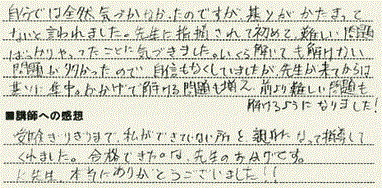 自分では全然気づかなかったのですが、基礎がかたまって
ないと言われました。先生に指摘されて初めて、難しい問題
ばっかりやってたことに気づきました。いくら解いても解けない
問題が多かったので、自信もなくしていましたが、先生が来てからは
基礎に集中。おかげで解ける問題も増え、前より難しい問題も
解けるようになりました!
■講師への感想
受験ぎりぎりまで、私ができていない所を親身になって指導して
くれました。合格できたのは、先生のおかげです。
先生、本当にありがとうございました!!